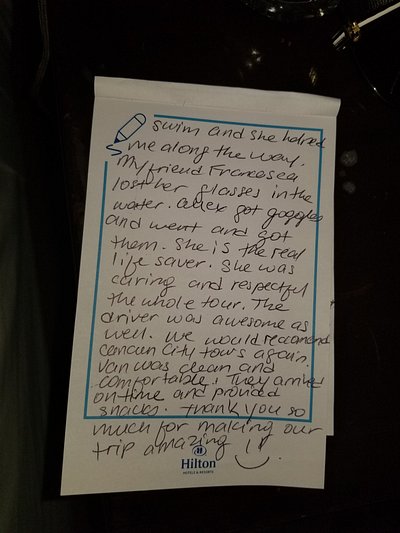 swim and she helped
me along the way.
My friend Francesca
lost her glasses in the
water. Alex got goggles
and went and got
them. She is the real
life saver. She was
caring and respectful
the whole tour. The
driver was awesome as
well. We would reccomend
cancun City tours again.
Van was clean and
comfortable. They arrived
on time and provided
snacks. Thank you so
much for making our
trip amazing !!
Hilton
HOTELS & RESORTS